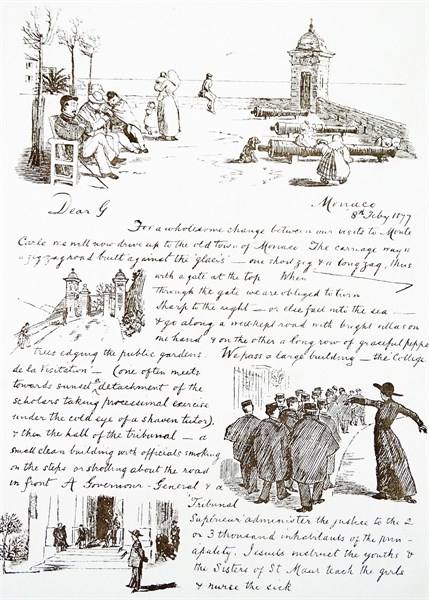 Monaco
8th Feby 1877
Dear G
For a wholesome change between our visits to Monte
Carlo we will now drive up to the old town of Monaco The carriage way is
a zigzag road built against the 'glacis' — one short zig & a long zag, thus
with a gate at the top When
through the gate we are obliged to turn
sharp to the right — or else fall into the sea —
& go along a well kept road with bright villas on
one hand & on the other a long row of graceful pepper
trees edging the public gardens. We pass a large building — the College
de la Visitation — (one often meets
towards sunset a detachment of the
scholars taking processional exercise
under the cold eye of a shaven tutor).
& then the hall of the tribunal — a
small clean building with officials smoking
on the steps or strolling about the road
in front A Governour-General & a
Tribunal
Supérieur administer the justice to the 2
or 3 thousand inhabitants of the prin-
cipality. Jesuits instruct the youths &
the Sisters of St Maur teach the girls
& nurse the sick